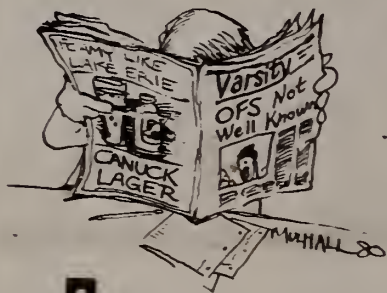 FOAMY LIKE
LAKE ERIE
CANUCK
LAGER
Varsity
OFS Not
Well Known
MULHALL 80